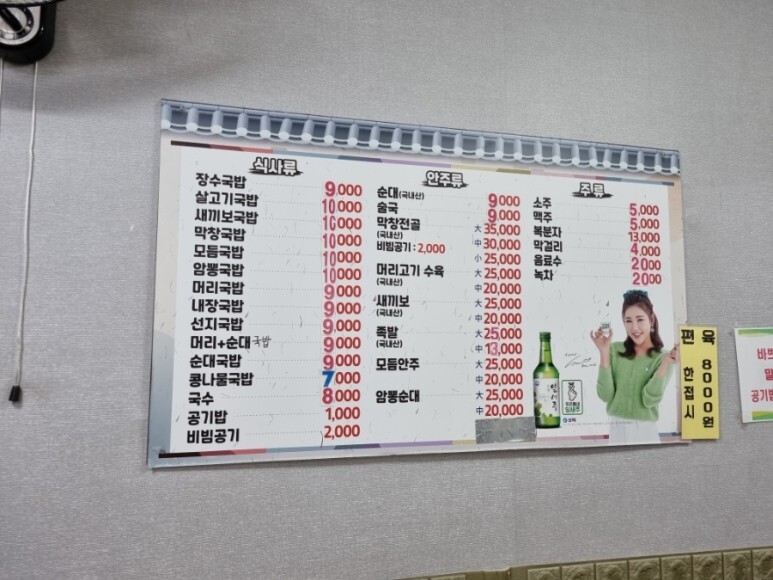 식사류
장수국밥 9,000
살고기국밥 10,000
새끼보국밥 10,000
막창국밥 10,000
모듬국밥 10,000
암뽕국밥 10,000
머리국밥 9,000
내장국밥 9,000
선지국밥 9,000
머리+순대국밥 9,000
순대국밥 9,000
콩나물국밥 7,000
국수 8,000
공기밥 1,000
비빔공기 2,000
안주류
순대(국내산) 9,000
술국 9,000
막창전골 大 35,000
(국내산) 中 30,000
비빔공기 : 2,000 小 25,000
머리고기 수육 大 25,000
(국내산) 中 20,000
새끼보 大 25,000
(국내산) 中 20,000
족발 大 25,000
(국내산) 中 13,000
모듬안주 大 25,000
中 20,000
암뽕순대 大 25,000
中 20,000
주류
소주 5,000
맥주 5,000
복분자 13,000
막걸리 4,000
음료수 2000
녹차 2000
잎새주
잎새주
편육
한접시
8000원
바쁘
말
공기밥